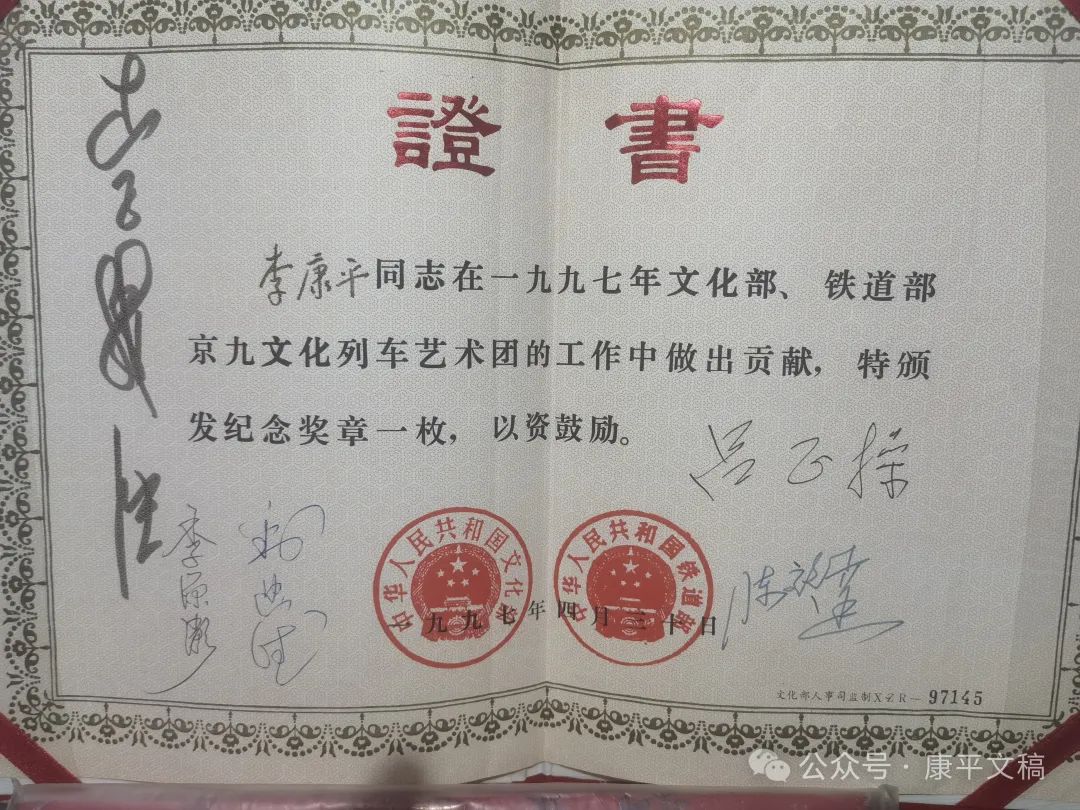 證書
李康平同志在一九九七年文化部、铁道部
京九文化列车艺术团的工作中做出贡献，特颁
发纪念奖章一枚，以资鼓励。
吕正操
中华人民共和国文化部
中华人民共和国铁道部
一九九七年四月三十日
文化部人事司监制XZR－97145
公众号·康平文稿